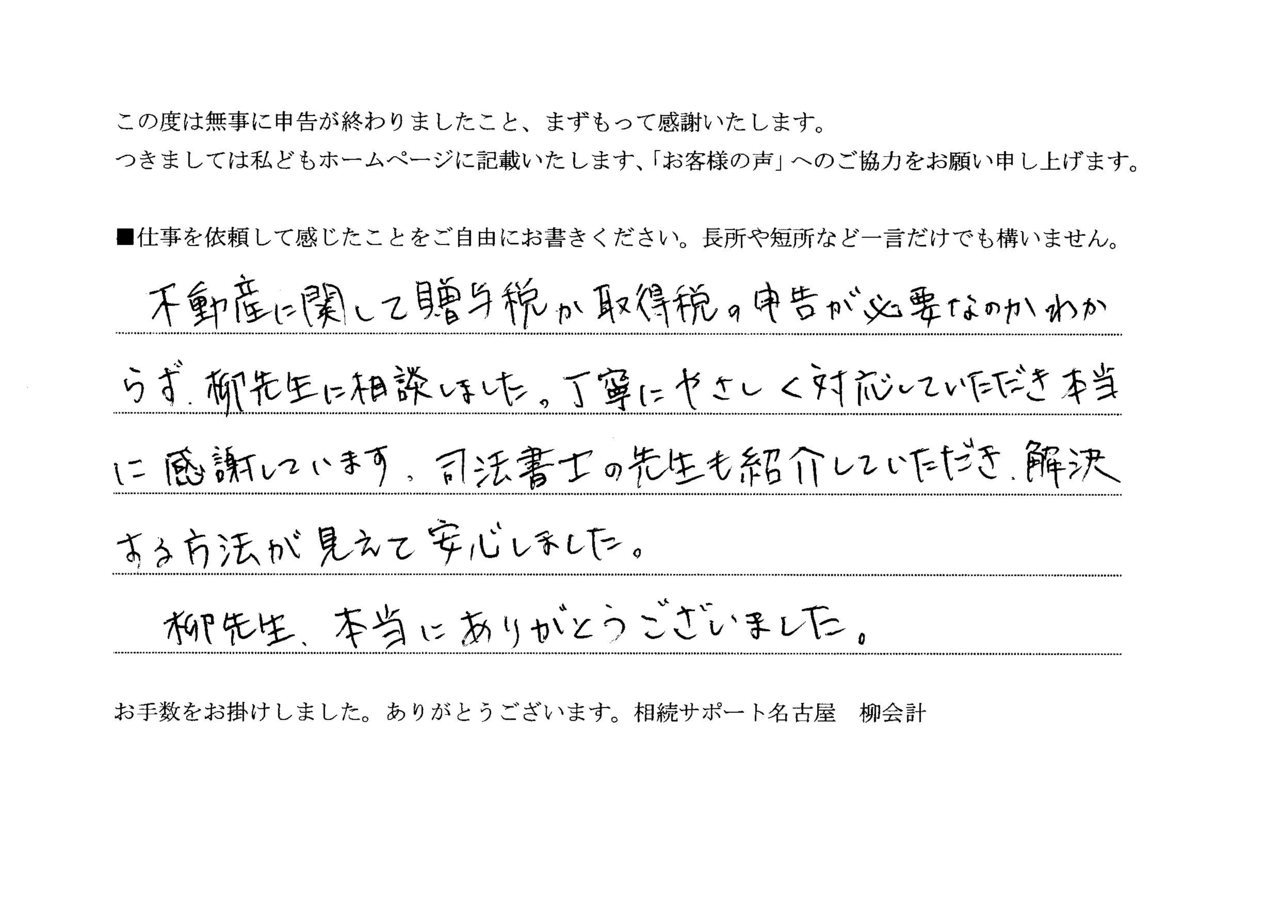 この度は無事に申告が終わりましたこと、まずもって感謝いたします。
つきましては私どもホームページに記載いたします、「お客様の声」へのご協力をお願い申し上げます。
■仕事を依頼して感じたことをご自由にお書きください。長所や短所など一言だけでも構いません。
不動産に関して贈与税か取得税の申告が必要なのかわか
らず、柳先生に相談しました。丁寧にやさしく対応していただき本当
に感謝しています。司法書士の先生も紹介していただき、解決
する方法が見えて安心しました。
柳先生、本当にありがとうございました。
お手数をお掛けしました。ありがとうございます。相続サポート名古屋　柳会計